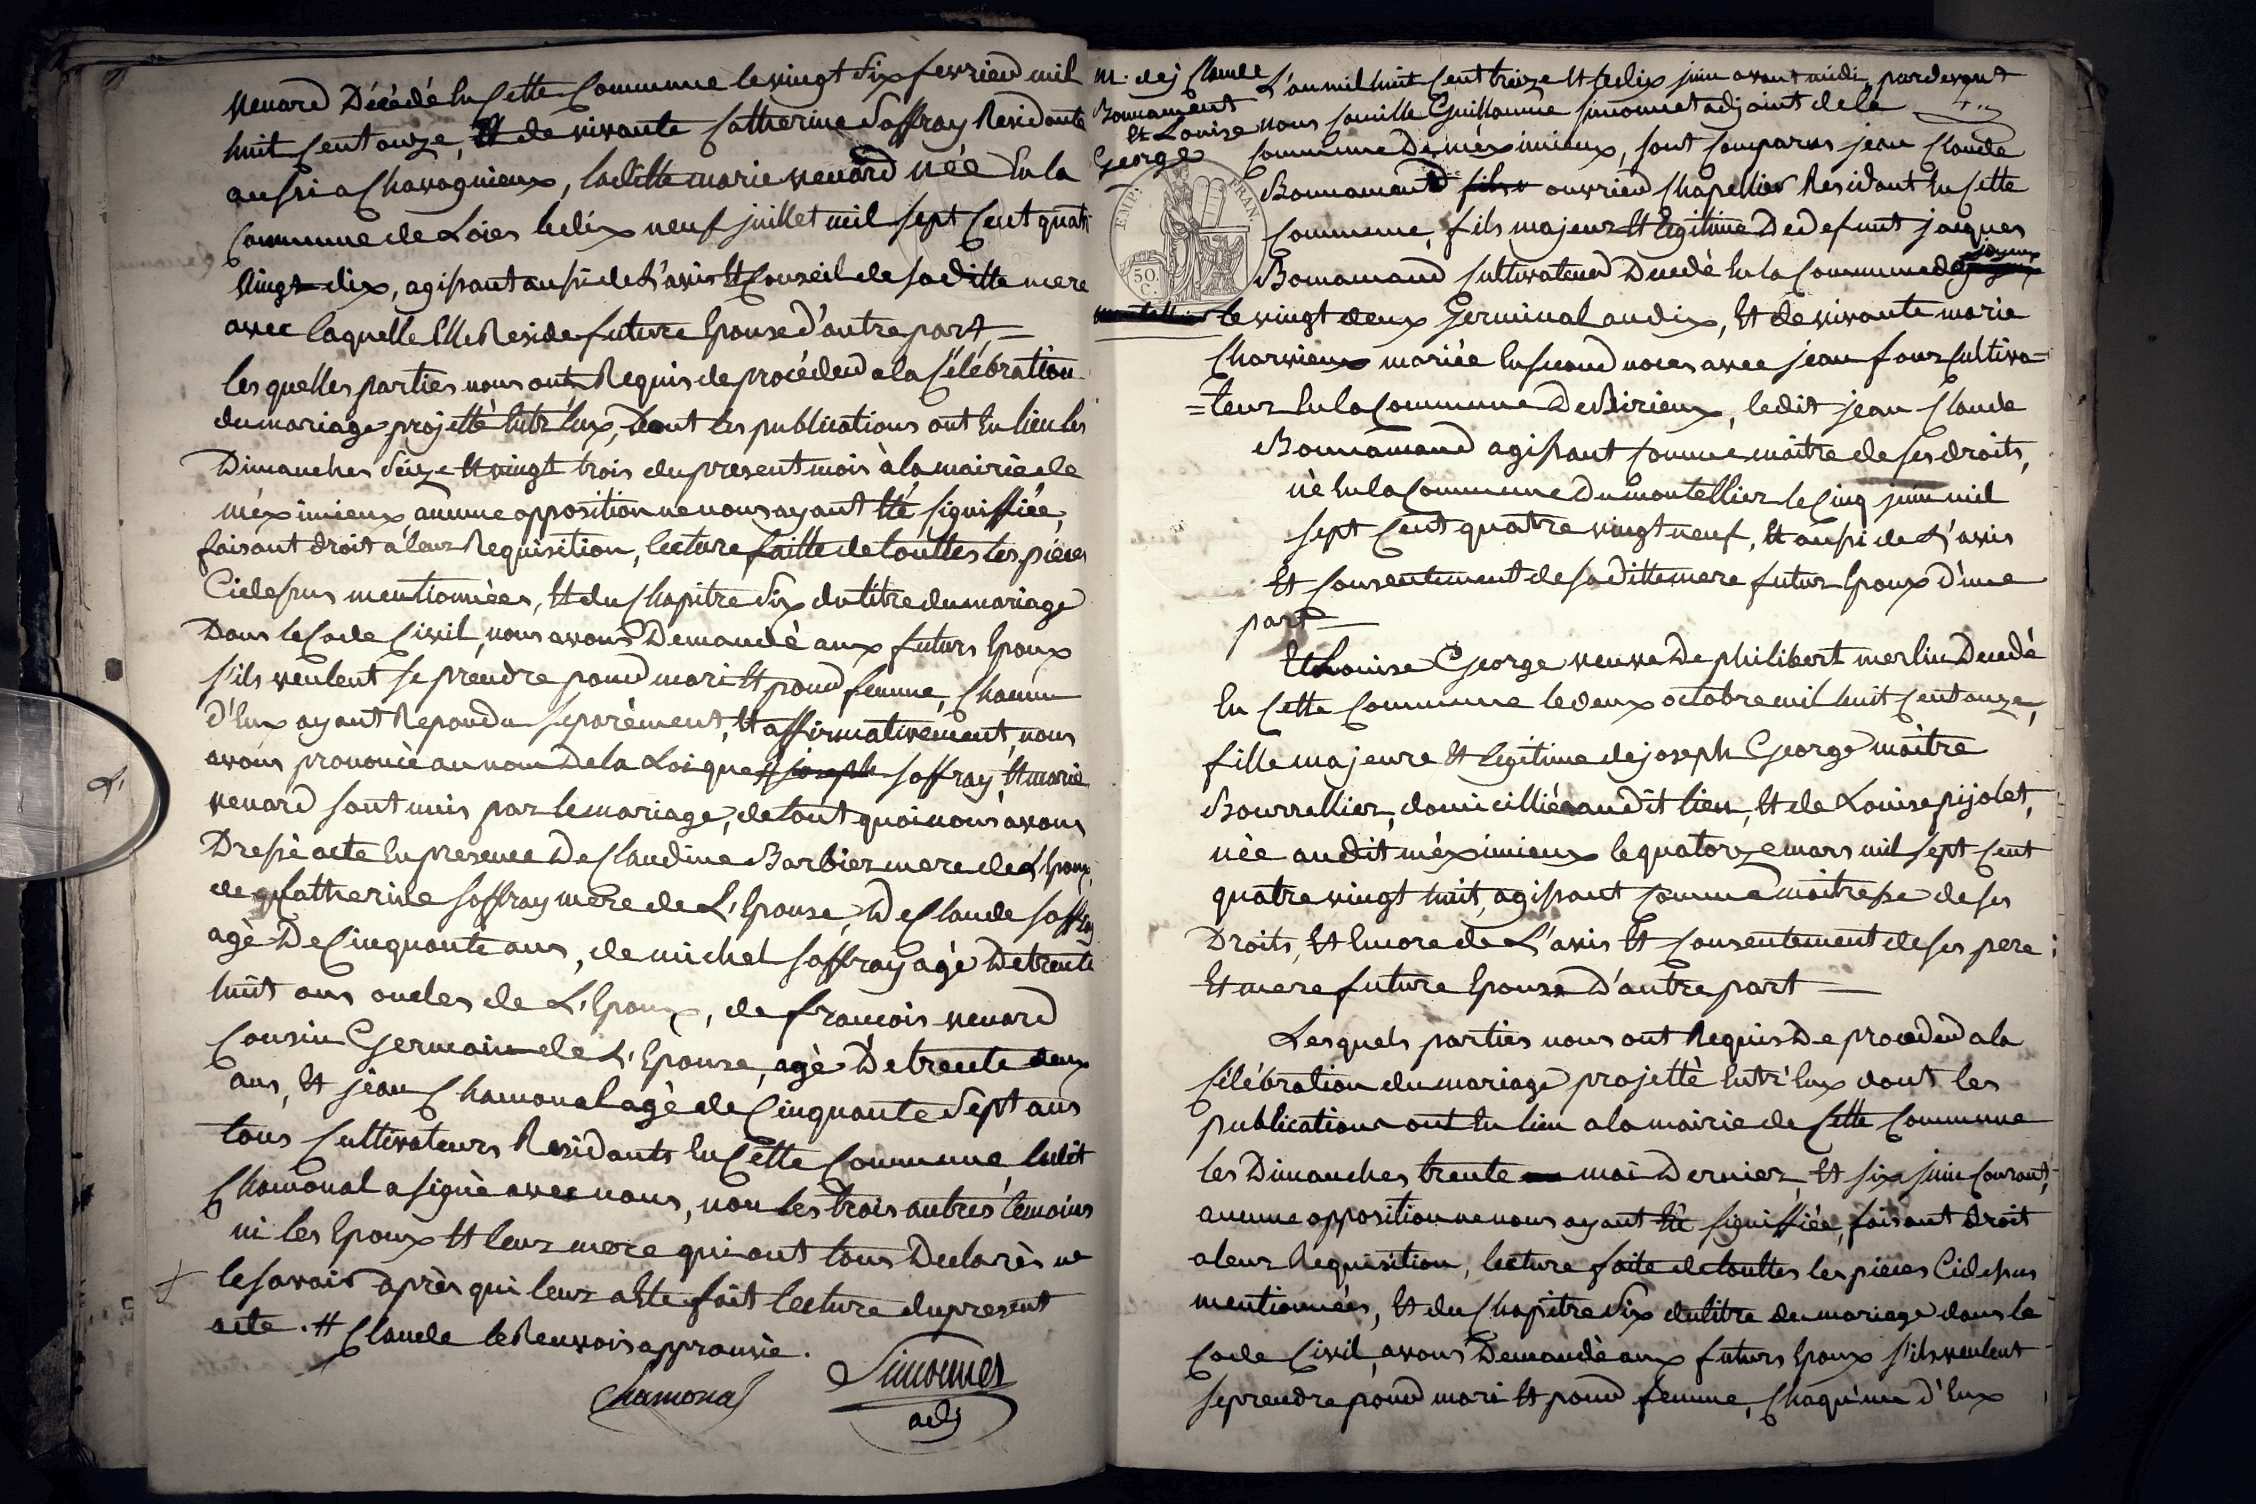 venard Décédé En Cette Commune le vingt Six fevrier mil
huit Cent onze, Et de vivante Catherine Soffray Residante
aussi a Chavagnieux, laditte marie venard née En la
Commune de Loies le dix neuf juillet mil sept Cent quatre
vingt dix, agissant aussi de L'avis Et Conseil de sa ditte mere
avec laquelle Elle Reside future Epouse d'autre part, —
les quelles parties nous ont Requis de procéder a la Célébration
du mariage projetté Entr'Eux, Dont les publications ont Eu lieu les
Dimanches Seize Et vingt trois du present mois à la mairie de
méximieux, aucune opposition ne nous ayant Eté signiffiée,
faisant droit à leur Requisition, lecture faitte de touttes les pièces
Ci dessus mentionnées, Et du Chapitre Six du titre du mariage
Dans le Code Civil, nous avons Demandé aux futurs Epoux
s'ils veulent se prendre pour mari Et pour femme, Chacun
d'Eux ayant Repondu separément, Et affirmativement, nous
avons prononcé au nom De la Loi que # joseph Soffray Et marie
venard sont unis par le mariage, de tout quoi nous avons
Dressé acte En presence De Claudine Barbier mere de L'Epoux,
de Catherine Soffray mere de L'Epouse, De Claude Soffray
agé De Cinquante ans, de michel Soffray agé De trente
huit ans oncles de L'Epoux, de françois venard
Cousin Germain de L'Epouse, agé De trente deux
ans, Et jean Chamonal agé de Cinquante Sept ans
tous Cultivateurs Residants En Cette Commune, ledit
Chamonal a signé avec nous, non les trois autres temoins
ni les Epoux Et leur mere qui ont tous Declarés ne
le savoir après qui leur a Ete fait lecture du present
acte. # Claude le Renvois approuvé.
Chamonal
Simonnet
adj
M. dej Claude
Bonnament
Et Louise
George
L'an mil huit Cent treize Et le dix juin avant midi, pardevant
nous Camille Guillaume Simonnet adjoint de la
Commune De méximieux, sont Comparus jean Claude
Bonnamand fils ouvrier Chapellier Residant En Cette
Commune, fils majeur Et legitime De defunt jacques
Bonnamand Cultivateur Decedé En la Commune de joyeux
le vingt deux Germinal an dix, Et de vivante marie
Charvieux mariée En second noces avec jean four Cultiva=
=teur En la Commune De Birieux, ledit jean Claude
Bonnamand agissant Comme maitre de ses droits,
né En la Commune Du montellier le Cinq juin mil
sept Cent quatre vingt neuf, Et aussi de L'avis
Et Consentement de sa ditte mere futur Epoux d'une
part —
Et Louise George veuve De philibert merlin Decedé
En Cette Commune le deux octobre mil huit Cent onze,
fille majeure Et legitime de joseph George maitre
Bourrellier, domicillié audit lieu, Et de Louise pijolet,
née audit méximieux le quatorze mars mil sept Cent
quatre vingt huit, agissant Comme maitresse de ses
Droits, Et Encore de L'avis Et Consentement de ses pere
Et mere future Epouse D'autre part —
Lesquels parties nous ont Requis De proceder a la
Célébration du mariage projetté Entr'Eux dont les
publications ont Eu lieu a la mairie de Cette Commune
les Dimanches trente mai Dernier, Et six juin Courant,
aucune opposition ne nous ayant Eté signiffiée, faisant Droit
a leur Requisition, lecture faite de touttes les pieces Ci dessus
mentionnées, Et du Chapitre Six du titre du mariage dans le
Code Civil, avons Demandé aux futurs Epoux s'ils veulent
se prendre pour mari Et pour femme, Chaqu'un d'Eux
EMP. FRAN.
50.
C.